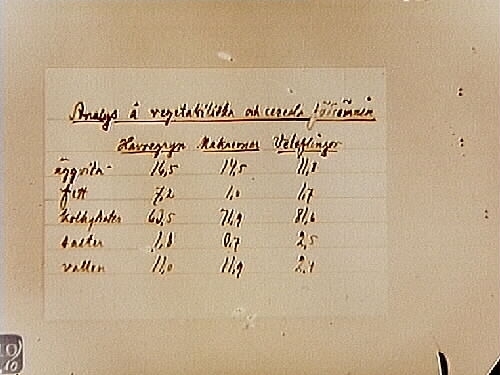 Analys å vegetabiliska och cereala födoämnen
Havregryn Makaroner Veteflingor
äggvita 16,5 14,5 11,8
fett 7,2 1,0 1,7
kolhydrater 63,5 71,9 81,6
salter 1,8 0,7 2,5
vatten 11,0 11,9 2,4
10
10